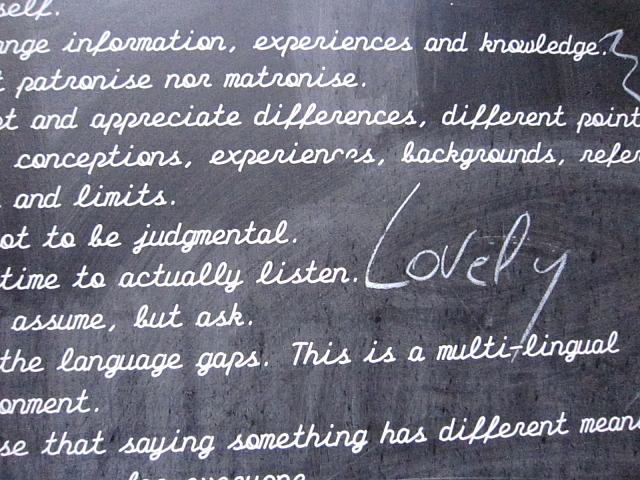 self.
nge information, experiences and knowledge.
t patronise nor matronise.
t and appreciate differences, different point
conceptions, experiences, backgrounds, refer
and limits.
ot to be judgmental.
Lovely
time to actually listen.
assume, but ask.
the language gaps. This is a multi-lingual
onment.
se that saying something has different mean
for everyone